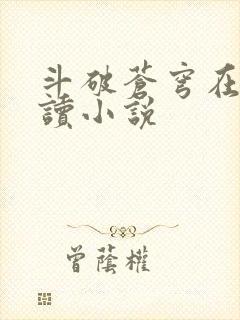 斗破蒼穹在
讀小說
曾蔭權